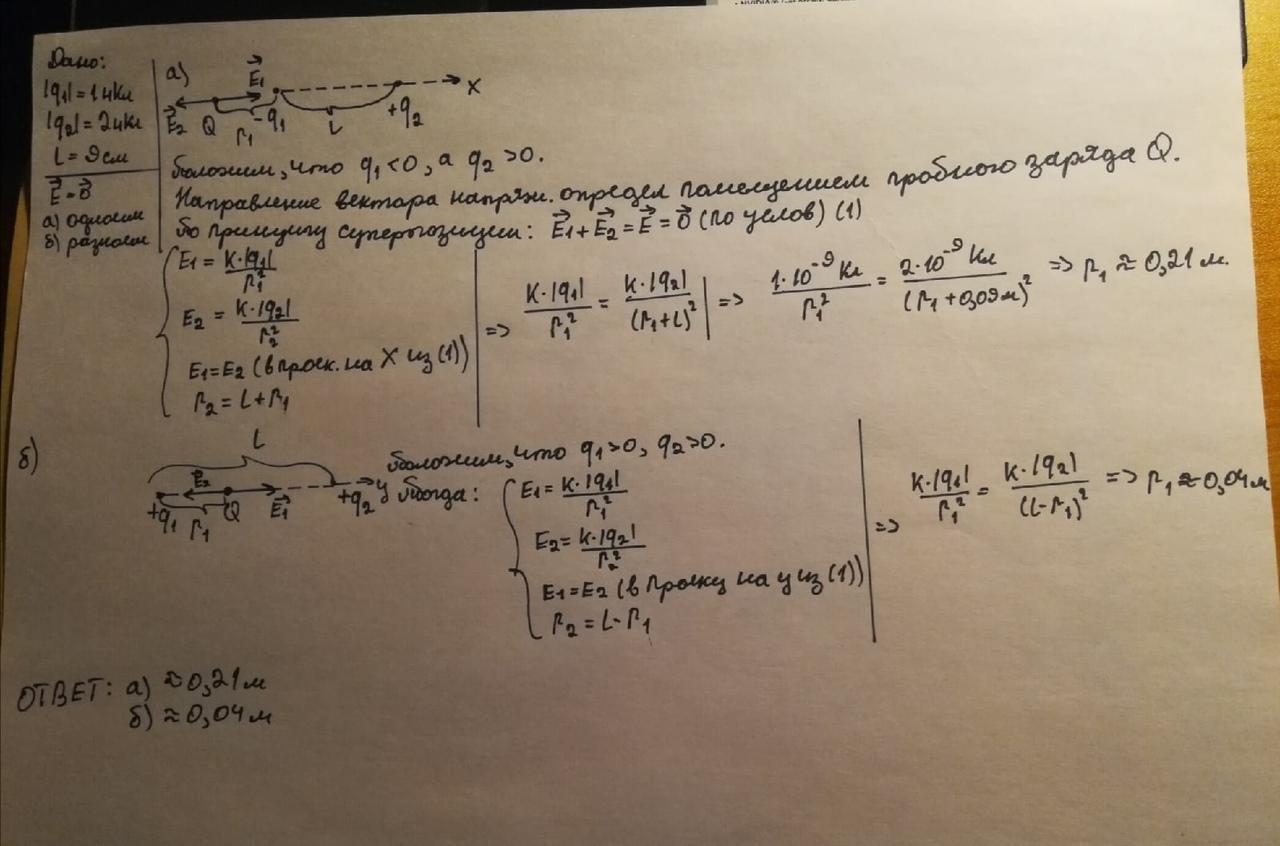 Дано:
|q1| = 1 нКл
|q2| = 2 нКл
L = 9 см
E = 0
а) одноим
б) разноим
а)
E1
X
E2 Q r1 -q1 L +q2
Положим, что q1 < 0, а q2 > 0.
Направление вектора напряж. определ помещением пробного заряда Q.
По принципу суперпозиции: E1 + E2 = E = 0 (по услов) (1)
E1 = K·|q1| / r1²
E2 = K·|q2| / r2²
E1 = E2 (в проек. на X из (1))
r2 = L + r1
=> K·|q1| / r1² = K·|q2| / (r1+L)² => 1·10⁻⁹ Кл / r1² = 2·10⁻⁹ Кл / (r1 + 0,09 м)² => r1 ≈ 0,21 м.
б)
L
E2
+q1 r1 Q E1 +q2 y
Положим, что q1 > 0, q2 > 0.
Тогда:
E1 = K·|q1| / r1²
E2 = K·|q2| / r2²
E1 = E2 (в проекц на y из (1))
r2 = L - r1
=> K·|q1| / r1² = K·|q2| / (L-r1)² => r1 ≈ 0,04 м
ОТВЕТ: а) ≈ 0,21 м
б) ≈ 0,04 м